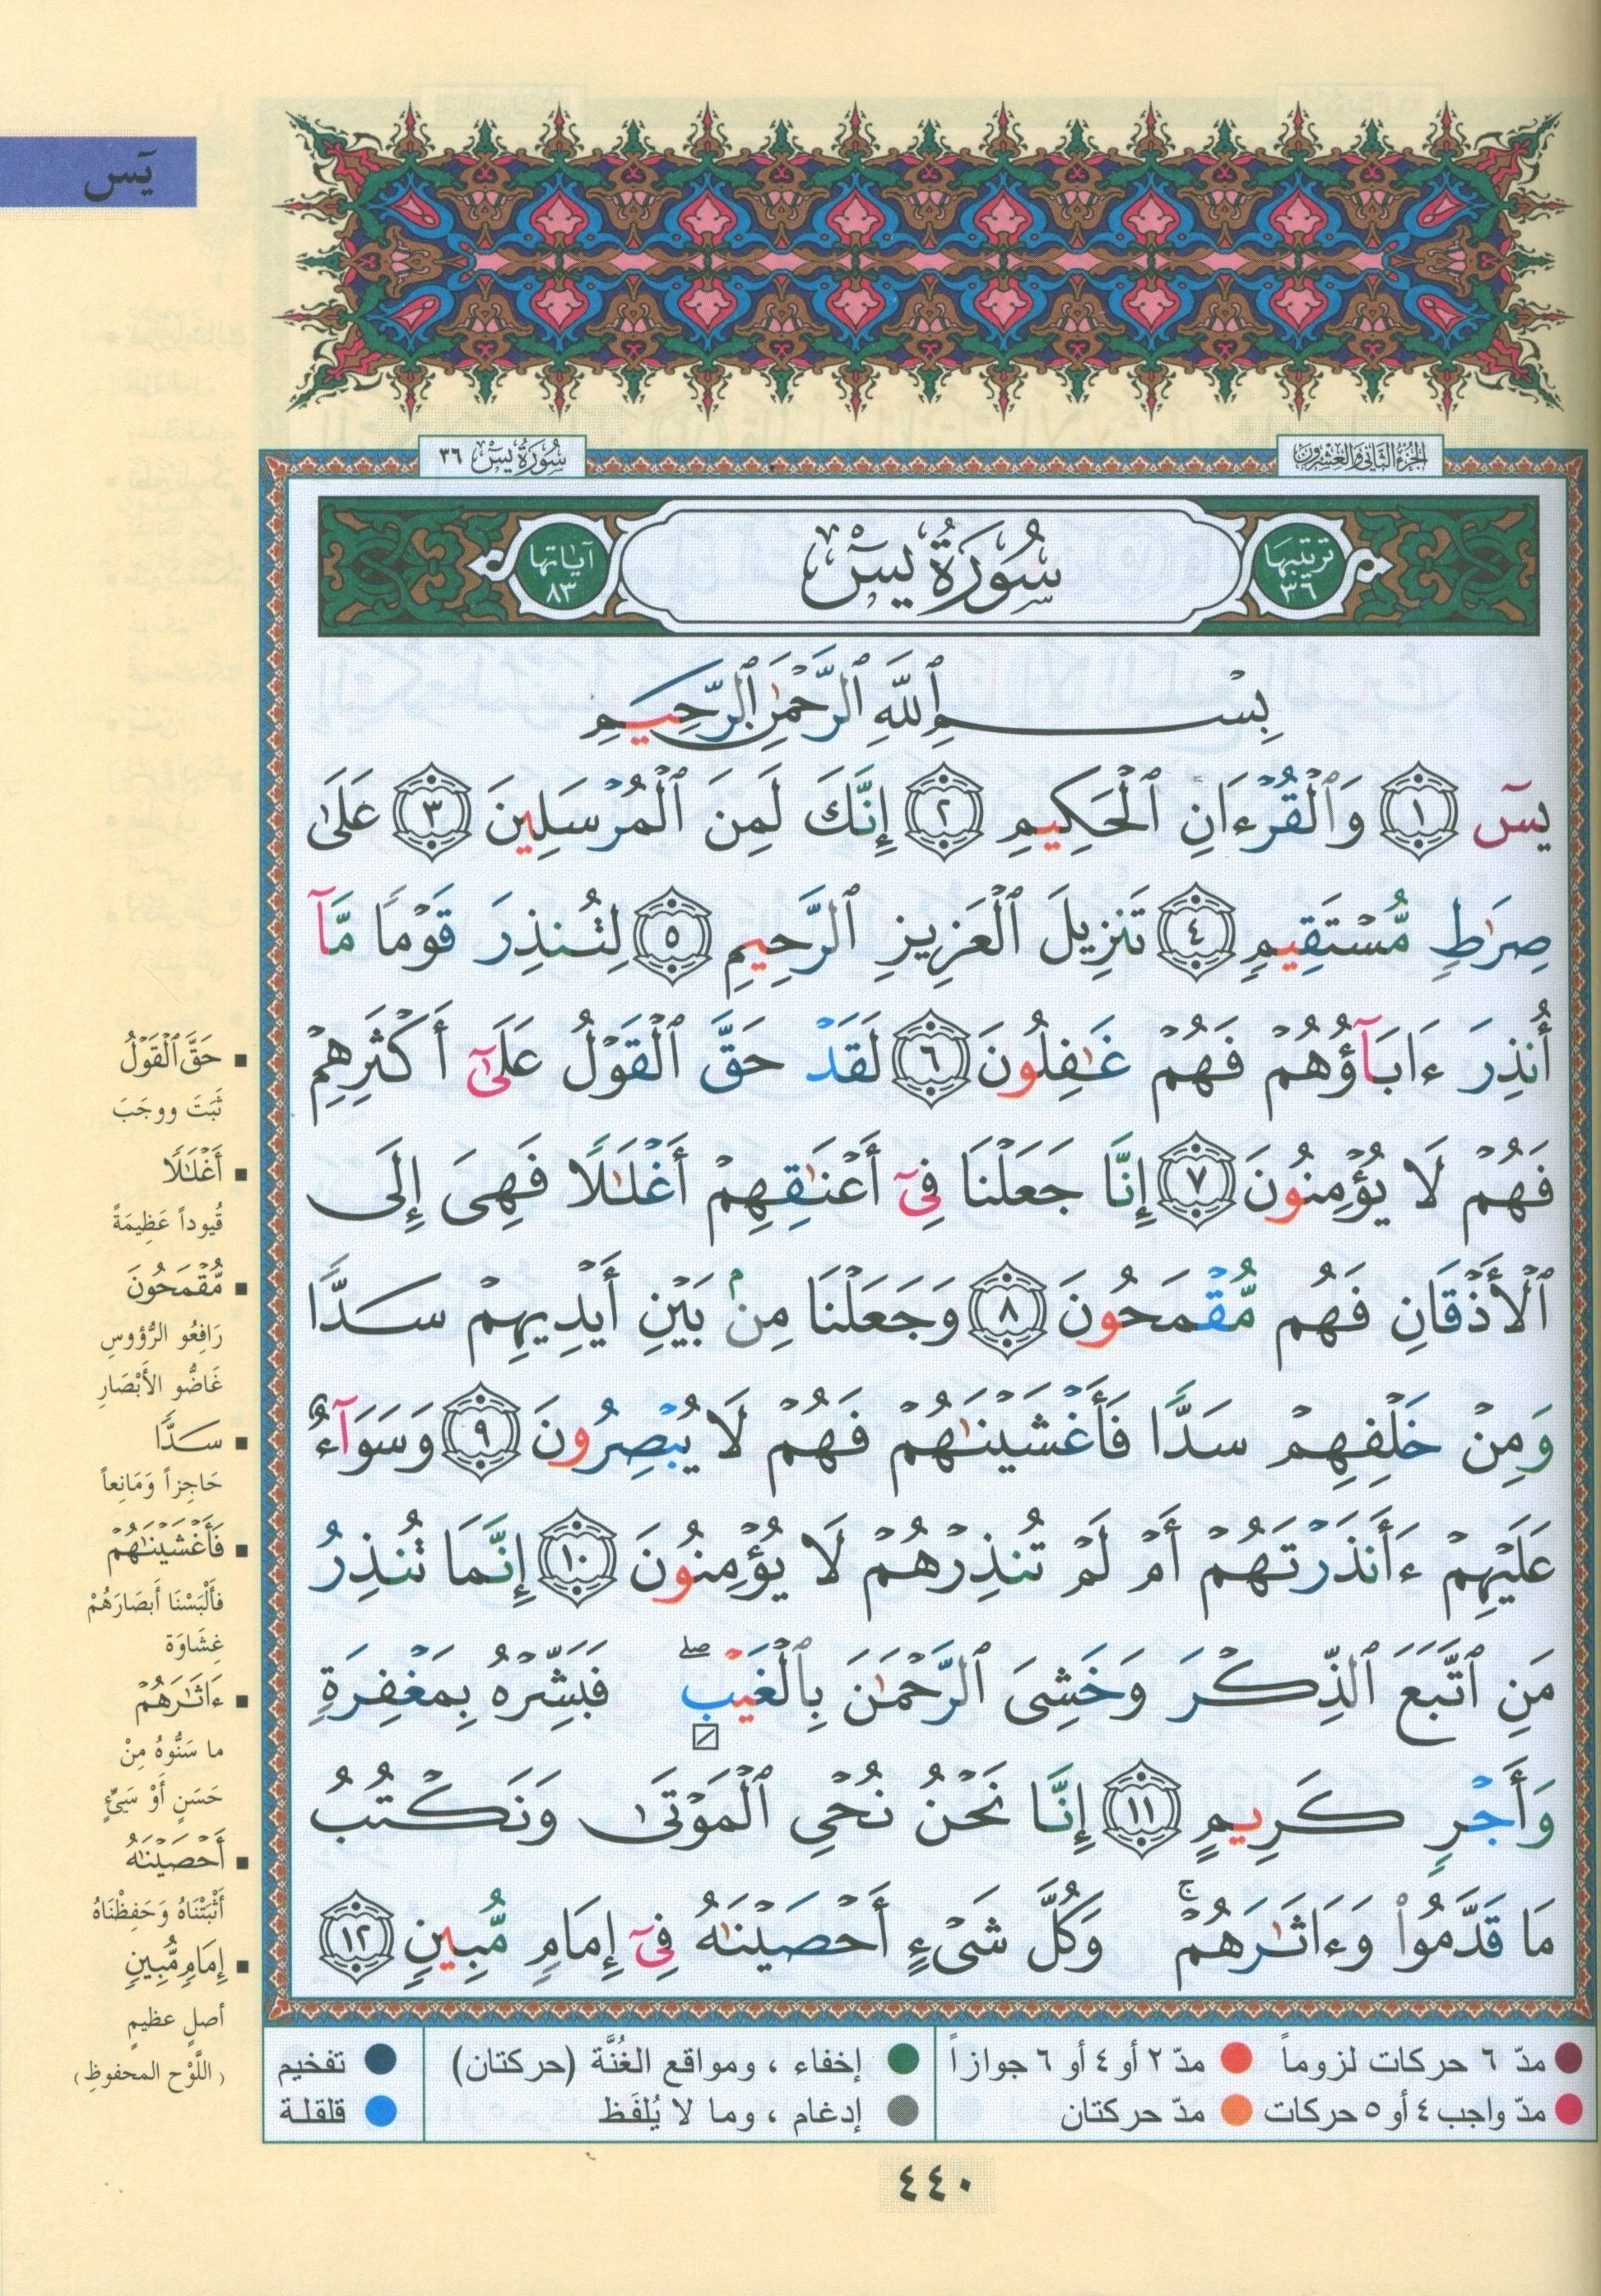 يسٓ
الجزء الثاني والعشرون
سورة يسٓ ٣٦
ترتيبها ٣٦
سُورَةُ يسٓ
آياتها ٨٣
بِسْمِ ٱللَّهِ ٱلرَّحْمَٰنِ ٱلرَّحِيمِ
يسٓ ١ وَٱلْقُرْءَانِ ٱلْحَكِيمِ ٢ إِنَّكَ لَمِنَ ٱلْمُرْسَلِينَ ٣ عَلَىٰ
صِرَٰطٍ مُّسْتَقِيمٍ ٤ تَنزِيلَ ٱلْعَزِيزِ ٱلرَّحِيمِ ٥ لِتُنذِرَ قَوْمًا مَّآ
أُنذِرَ ءَابَآؤُهُمْ فَهُمْ غَٰفِلُونَ ٦ لَقَدْ حَقَّ ٱلْقَوْلُ عَلَىٰٓ أَكْثَرِهِمْ
فَهُمْ لَا يُؤْمِنُونَ ٧ إِنَّا جَعَلْنَا فِىٓ أَعْنَٰقِهِمْ أَغْلَٰلًا فَهِىَ إِلَى
ٱلْأَذْقَانِ فَهُم مُّقْمَحُونَ ٨ وَجَعَلْنَا مِنۢ بَيْنِ أَيْدِيهِمْ سَدًّا
وَمِنْ خَلْفِهِمْ سَدًّا فَأَغْشَيْنَٰهُمْ فَهُمْ لَا يُبْصِرُونَ ٩ وَسَوَآءٌ
عَلَيْهِمْ ءَأَنذَرْتَهُمْ أَمْ لَمْ تُنذِرْهُمْ لَا يُؤْمِنُونَ ١٠ إِنَّمَا تُنذِرُ
مَنِ ٱتَّبَعَ ٱلذِّكْرَ وَخَشِىَ ٱلرَّحْمَٰنَ بِٱلْغَيْبِ ۖ فَبَشِّرْهُ بِمَغْفِرَةٍ
وَأَجْرٍ كَرِيمٍ ١١ إِنَّا نَحْنُ نُحْىِ ٱلْمَوْتَىٰ وَنَكْتُبُ
مَا قَدَّمُوا۟ وَءَاثَٰرَهُمْ ۚ وَكُلَّ شَىْءٍ أَحْصَيْنَٰهُ فِىٓ إِمَامٍ مُّبِينٍ ١٢
▪ حَقَّ ٱلْقَوْلُ
ثَبَتَ ووجَبَ
▪ أَغْلَٰلًا
قُيوداً عَظِيمَةً
▪ مُّقْمَحُونَ
رَافِعُو الرُّؤوسِ
غَاضُّو الأَبْصَارِ
▪ سَدًّا
حَاجِزاً وَمَانِعاً
▪ فَأَغْشَيْنَٰهُمْ
فأَلْبَسْنَا أَبصَارَهُمْ
غِشَاوَة
▪ ءَاثَٰرَهُمْ
ما سَنُّوهُ مِنْ
حَسَنٍ أَوْ سَيِّئٍ
▪ أَحْصَيْنَٰهُ
أَثْبَتْنَاهُ وَحَفِظْنَاهُ
▪ إِمَامٍ مُّبِينٍ
أصلٍ عظيمٍ
(اللَّوْحِ المحفوظِ)
مدّ ٦ حركات لزوماً مدّ ٢ أو ٤ أو ٦ جوازاً إخفاء ، ومواقع الغُنَّة (حركتان) تفخيم
مدّ واجب ٤ أو ٥ حركات مدّ حركتان إدغام ، وما لا يُلفَظ قلقلة
٤٤٠